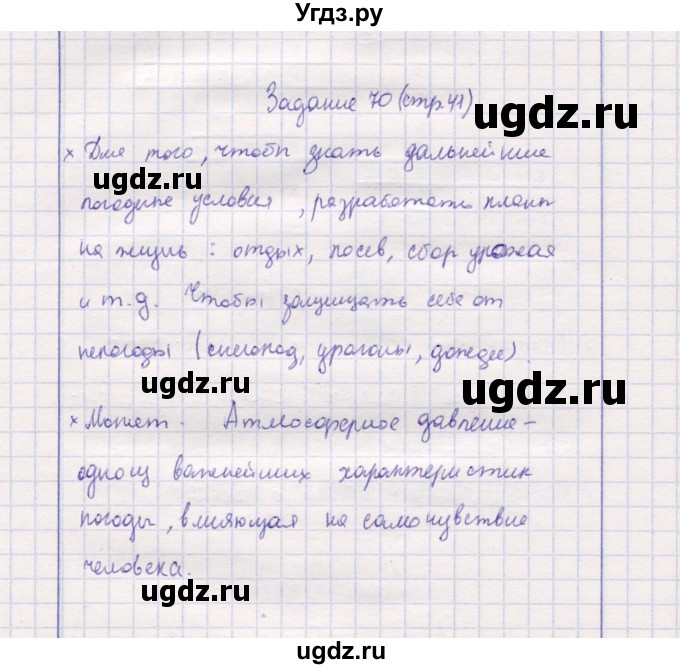 Угдз.ру
Задание 70 (стр.41)
ugdz.ru
× Для того, чтобы знать дальнейшие
ugdz.ru
погодные условия, разработать план
на жизнь: отдых, посев, сбор урожая
ugdz.ru
и т.д. Чтобы защищать себя от
непогоды (снегопад, ураганы, дожди).
ugdz.ru
ugdz.ru
× Может. Атмосферное давление -
одно из важнейших характеристик
ugdz.ru
погоды, влияющая на самочувствие
человека.
ugdz.ru
ugdz.ru